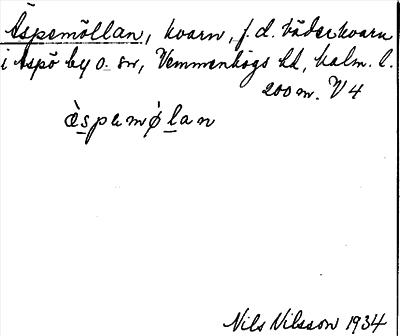 Äspemöllan, kvarn, f.d. väderkvarn
i Äspö by o. sn, Vemmenhögs hd, Malm. l.
200 m. V 4
è̀spamø̀lan
Nils Nilsson 1934